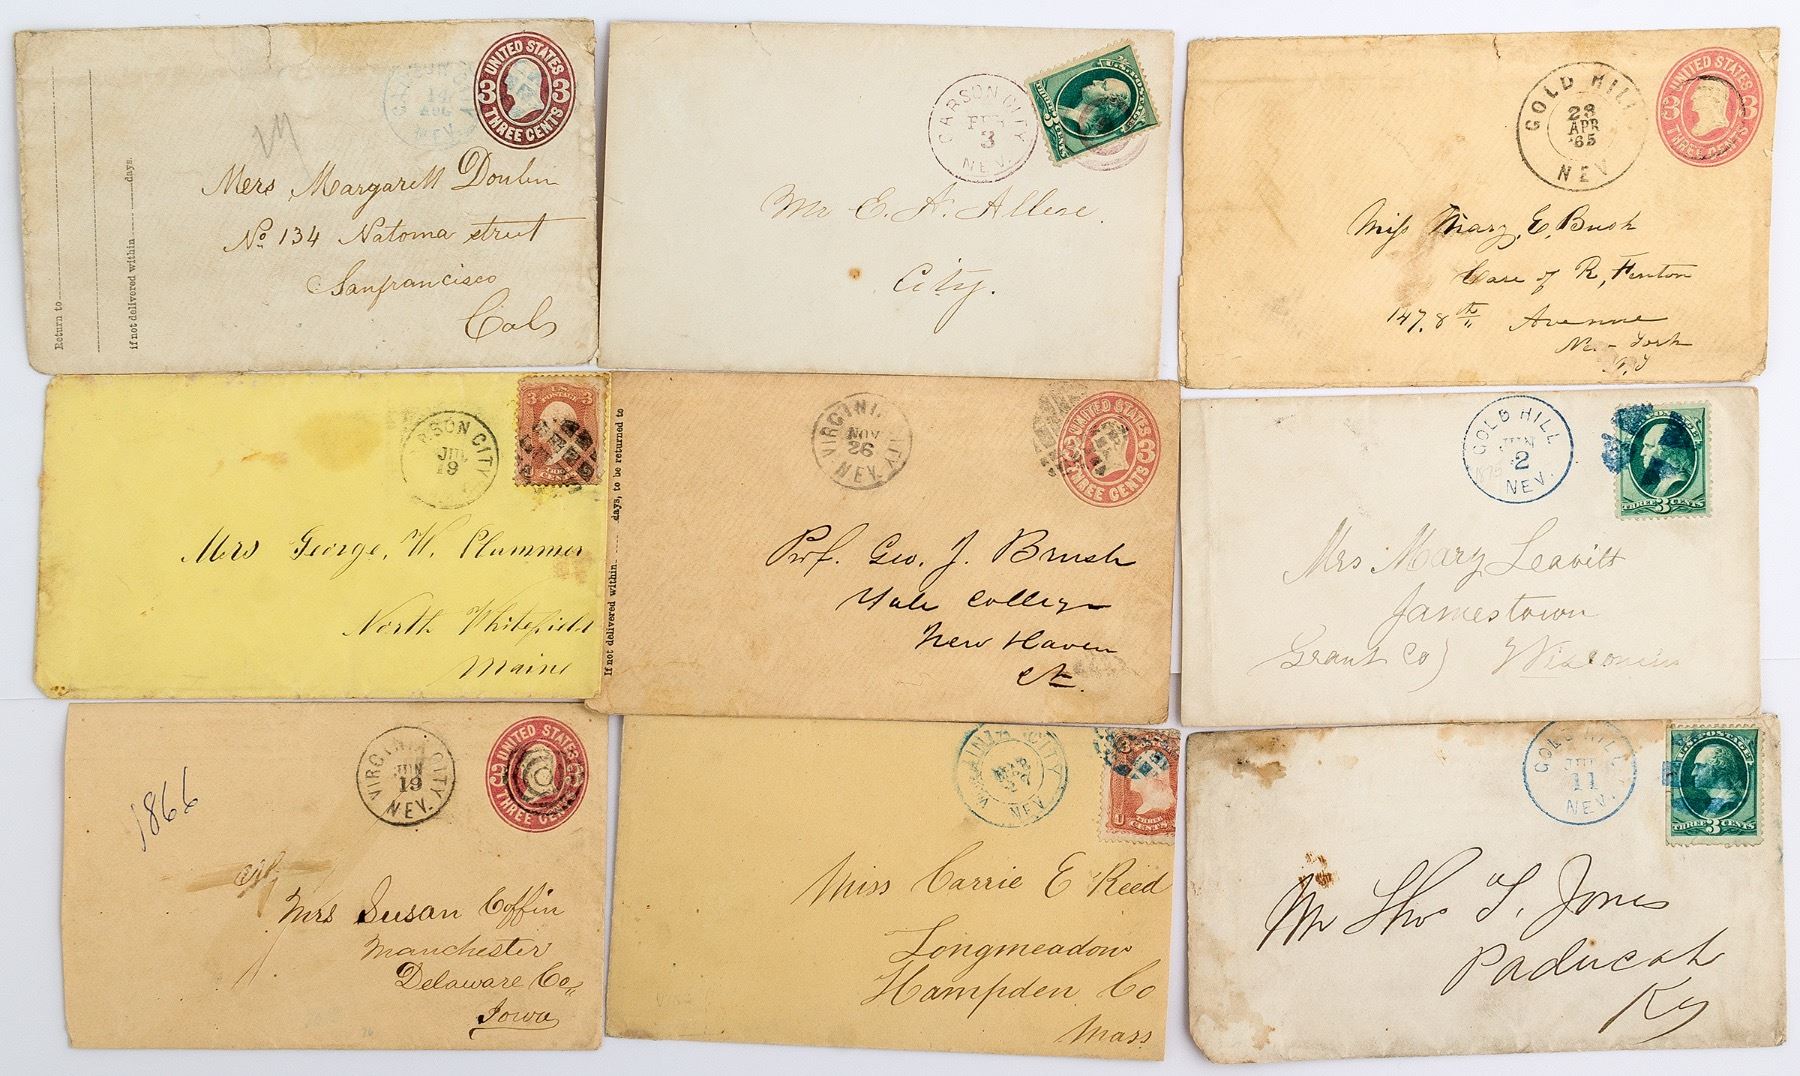 CARSON CITY
14
AUG
NEV.
UNITED STATES
3 3
THREE CENTS
Mers Margarett Doulin
No 134 Natoma street
Sanfrancisco
Cals
Return to
if not delivered within days.
CARSON CITY
3
NEV.
U.S. POSTAGE
THREE 3 CENTS
Mr E. A. Allese.
City.
GOLD HILL
23
APR
'65
NEV
UNITED STATES
3 3
THREE CENTS
Miss Mary, E, Bush
Care of R, Fenton
147, 8th Avenue
New-York
N.Y
CARSON CITY
JUL
19
3 POSTAGE 3
Mrs George, W. Plummer
North Whitefield
Maine
If not delivered within days, to be returned to
VIRGINIA CITY
NOV
26
NEV.
UNITED STATES
3 3
THREE CENTS
Prof. Geo. J. Brush
Yale College
New Haven
Ct.
GOLD HILL
JUN
2
NEV.
THREE 3 CENTS
Mrs Mary Leavitt
Jamestown
Grant Co) Wisconsin
VIRGINIA CITY
JUN
19
NEV.
UNITED STATES
3 3
THREE CENTS
1866
Mrs Susan Coffin
Manchester
Delaware Co,
Iowa
VIRGINIA CITY
MAR
27
NEV
Miss Carrie E Reed
Longmeadow
Hampden Co
Mass
GOLD HILL
11
NEV.
U.S. POSTAGE
THREE 3 CENTS
Mr Thos T. Jones
Paducah
Ky